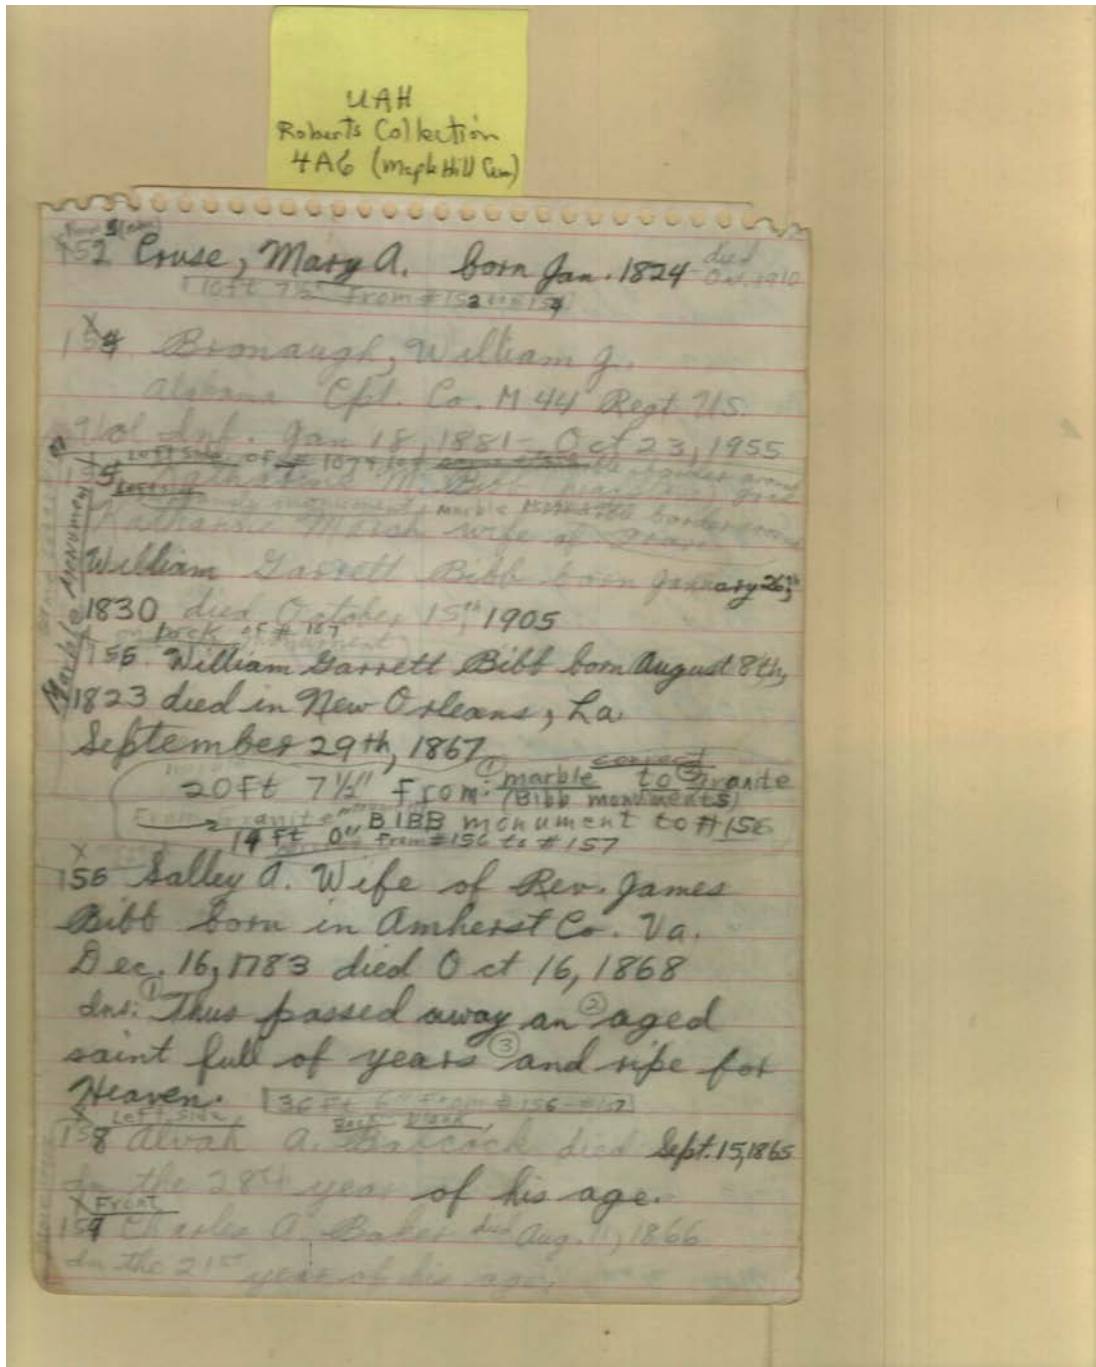 UAH
Roberts Collection
4A6 (Maple Hill Cem)
152 Cruse, Mary A. born Jan. 1824 died
Oct. 1910
10ft 7½" From #152 to #154
154 Bronaugh, William J.
Alabama Cpt. Co. M 44 Regt US.
Vol Inf. Jan 18, 1881 - Oct 23, 1955
Left side of # 107
M. Bibb
monument, marble border
wife of
William Garrett Bibb born January 26th,
1830 died October 15th, 1905
on back of # 167
monument
Marble MONUMENT
155. William Garrett Bibb born August 8th,
1823 died in New Orleans, La.
September 29th, 1867
correct
20Ft 7½" From: ① marble to ② Granite
(Bibb monuments)
From granite BIBB monument to #156
14 ft 0" From #156 to #157
156 Salley A. Wife of Rev. James
Bibb born in Amherst Co. Va.
Dec. 16, 1783 died Oct 16, 1868
Ins: ① Thus passed away an ② aged
saint full of years ③ and ripe for
Heaven. 36 Ft 6" From #156 - #157
Left side, Back blank,
158 Alvah A. Babcock died Sept. 15, 1865
In the 28th year of his age.
Front
159 Charles A. Baker died Aug. 11, 1866
In the 21st year of his age.